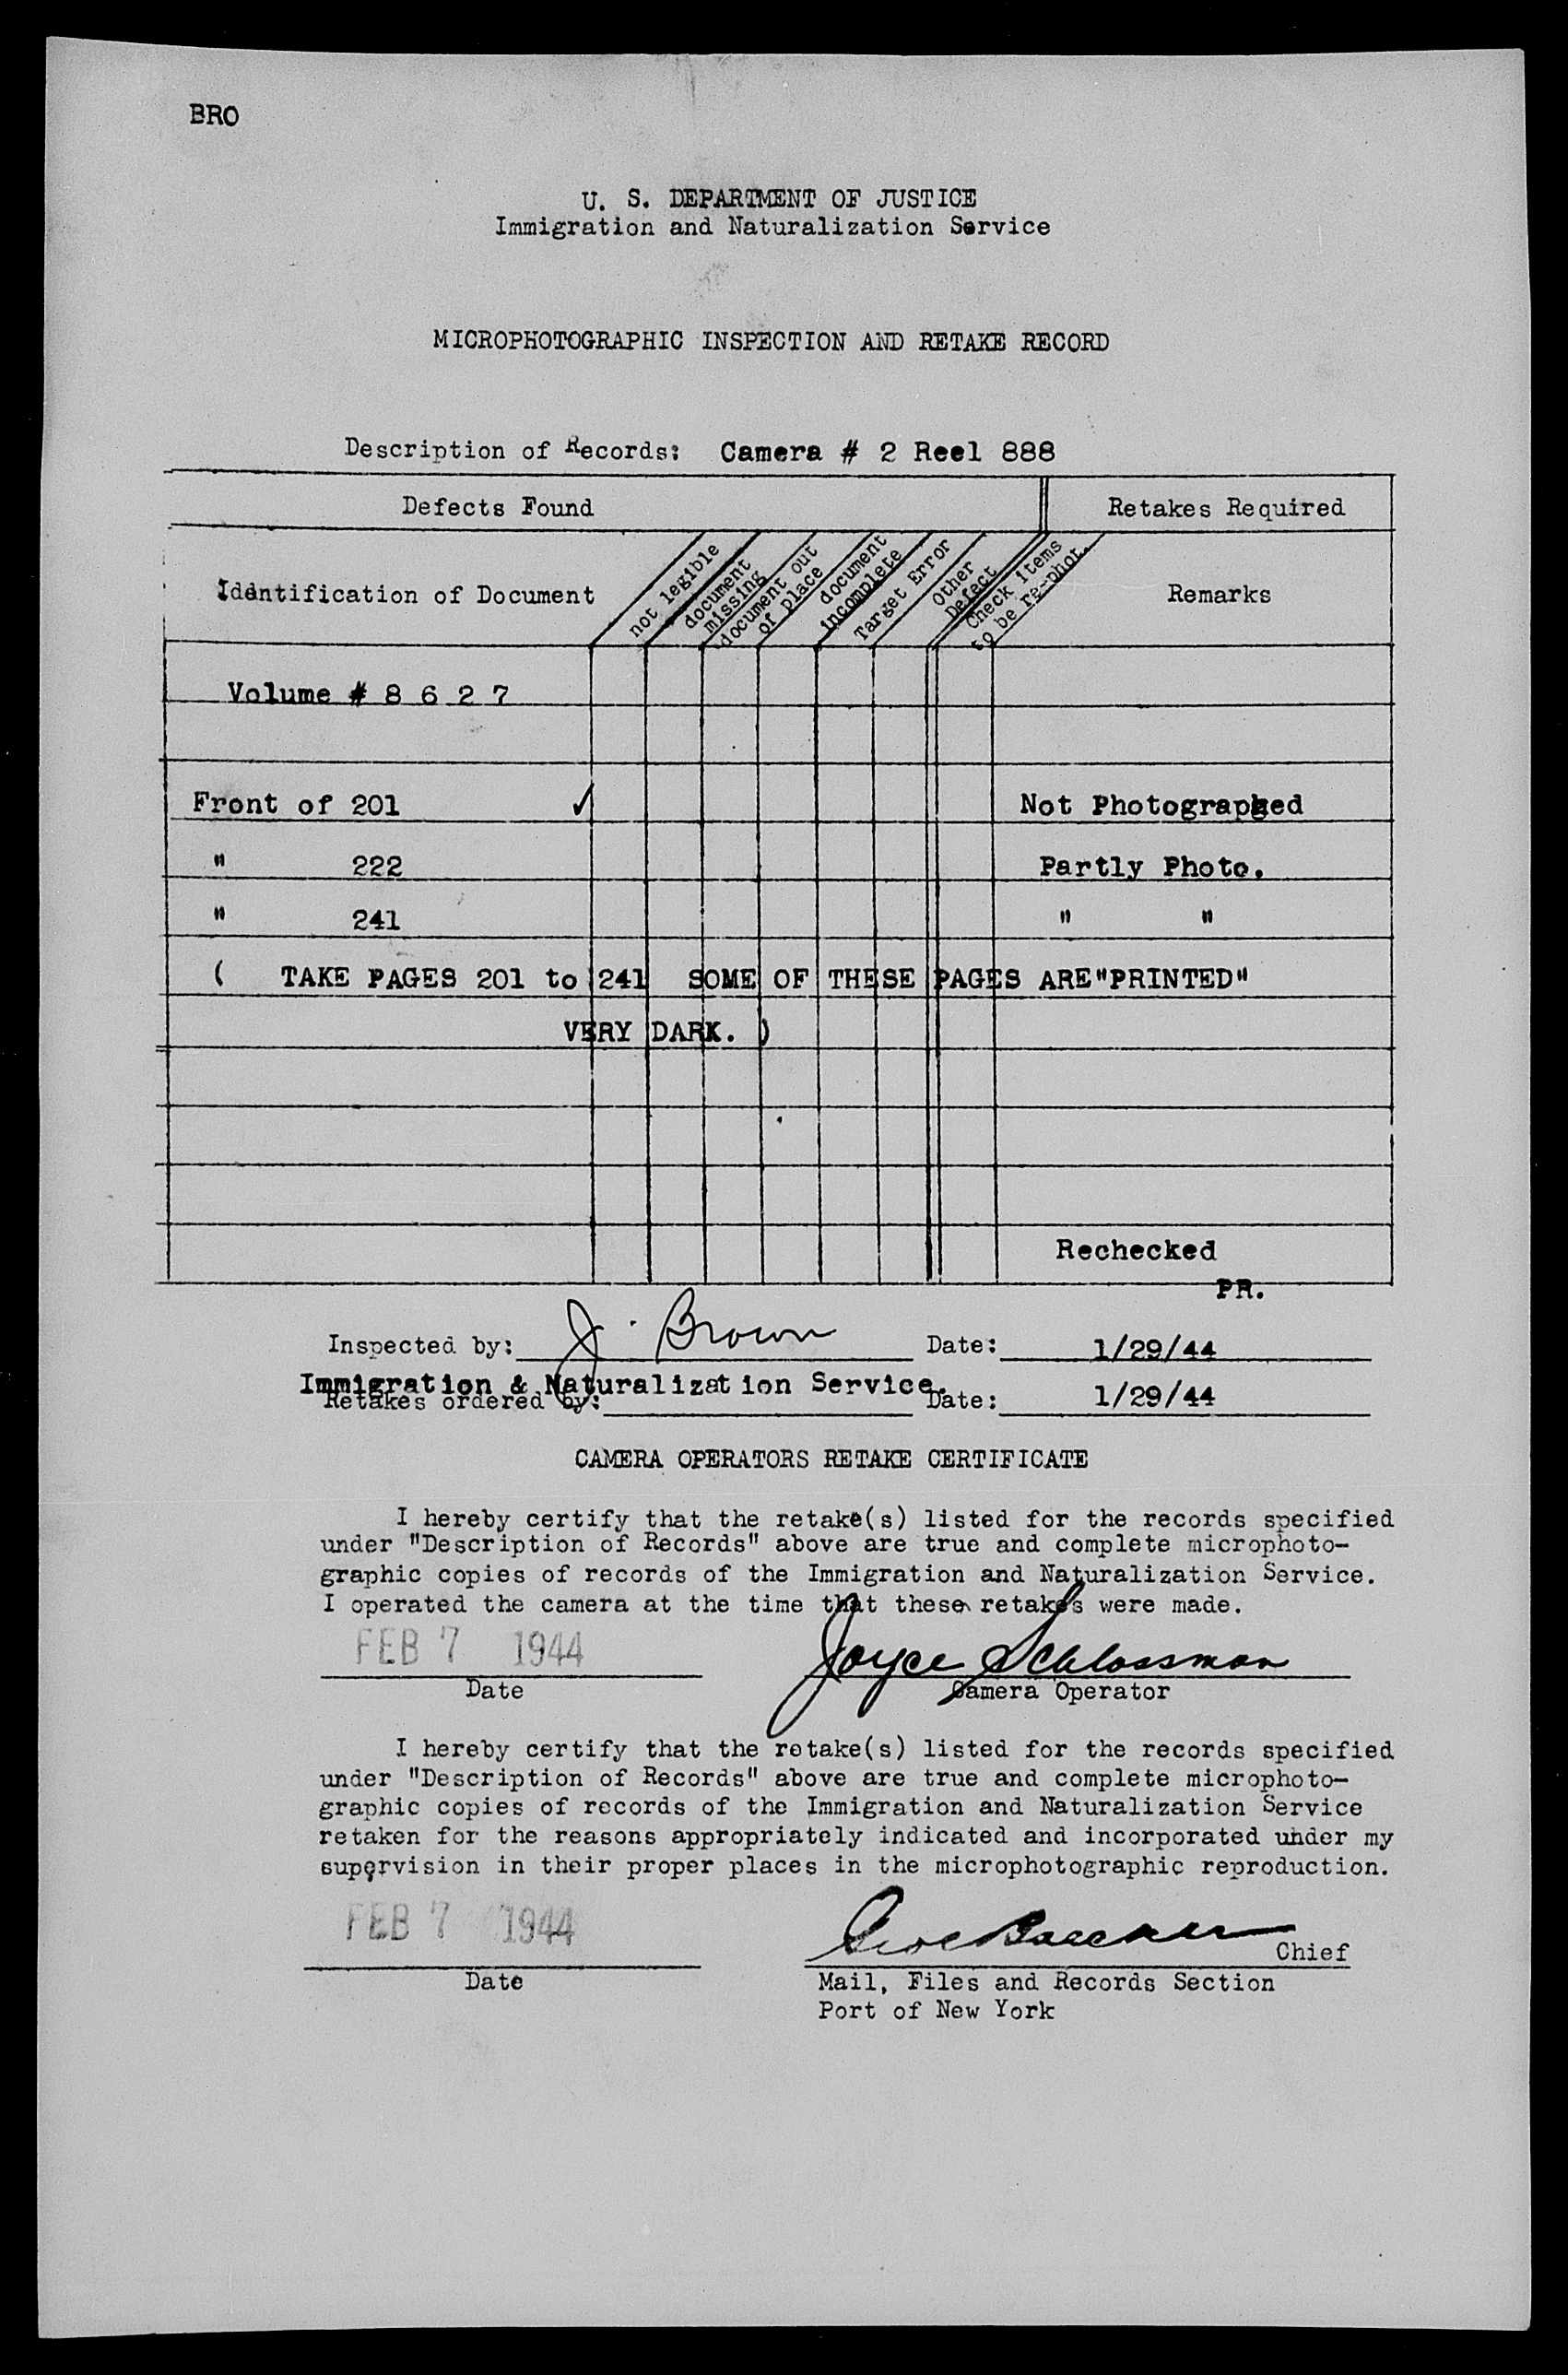 BRO
U. S. DEPARTMENT OF JUSTICE
Immigration and Naturalization Service
MICROPHOTOGRAPHIC INSPECTION AND RETAKE RECORD
Description of Records: Camera # 2 Reel 888
Defects Found
Retakes Required
Identification of Document
not legible
document missing
document out of place
document incomplete
Target Error
Other Defect
Check items to be re-phot.
Remarks
Volume # 8 6 2 7
Front of 201 ✓ Not Photographed
" 222 Partly Photo.
" 241 " "
( TAKE PAGES 201 to 241 SOME OF THESE PAGES ARE"PRINTED"
VERY DARK. )
Rechecked
PR.
Inspected by: J. Brown Date: 1/29/44
Immigration & Naturalization Service.
Retakes ordered by: Date: 1/29/44
CAMERA OPERATORS RETAKE CERTIFICATE
I hereby certify that the retake(s) listed for the records specified
under "Description of Records" above are true and complete microphoto-
graphic copies of records of the Immigration and Naturalization Service.
I operated the camera at the time that these retakes were made.
FEB 7 1944 Joyce Schlossman
Date Camera Operator
I hereby certify that the retake(s) listed for the records specified
under "Description of Records" above are true and complete microphoto-
graphic copies of records of the Immigration and Naturalization Service
retaken for the reasons appropriately indicated and incorporated under my
supervision in their proper places in the microphotographic reproduction.
FEB 7 1944 Chief
Date Mail, Files and Records Section
Port of New York